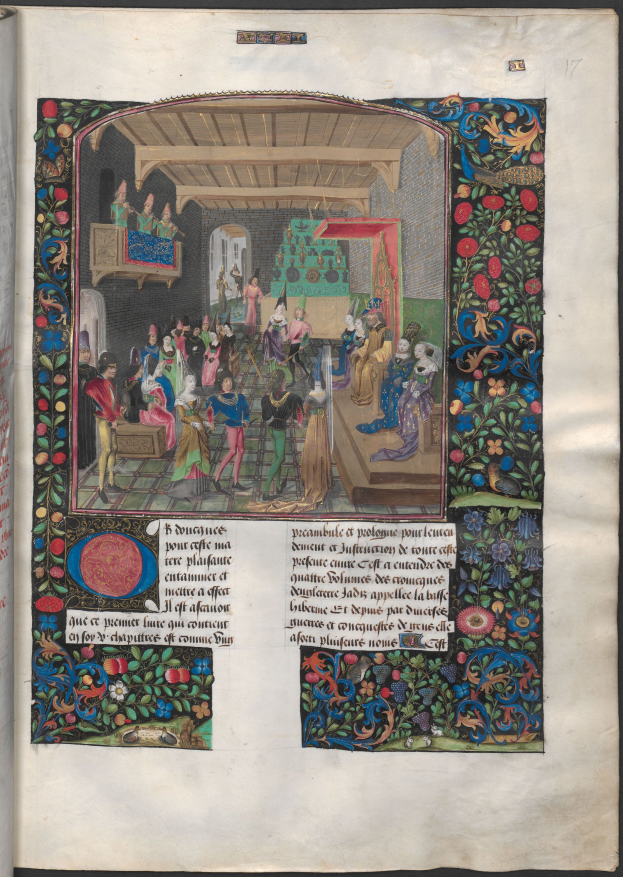 17
OR doncques
pour ceste ma
tere plaisante
entammer et
mettre a effect
Il est ascauoir
que ce premier liure qui contient
en soy v chapittres est comme Vng
preambule et prologue pour lenten
dement et Instruction de toute ceste
presente euure Cest a entendre des
quattre Volumes des cronicques
dengleterre Jadis appellee la basse
hibernie Et depuis par diuerses
guerres et concquestes de gens elle
a sorti pluiseurs noms Cest